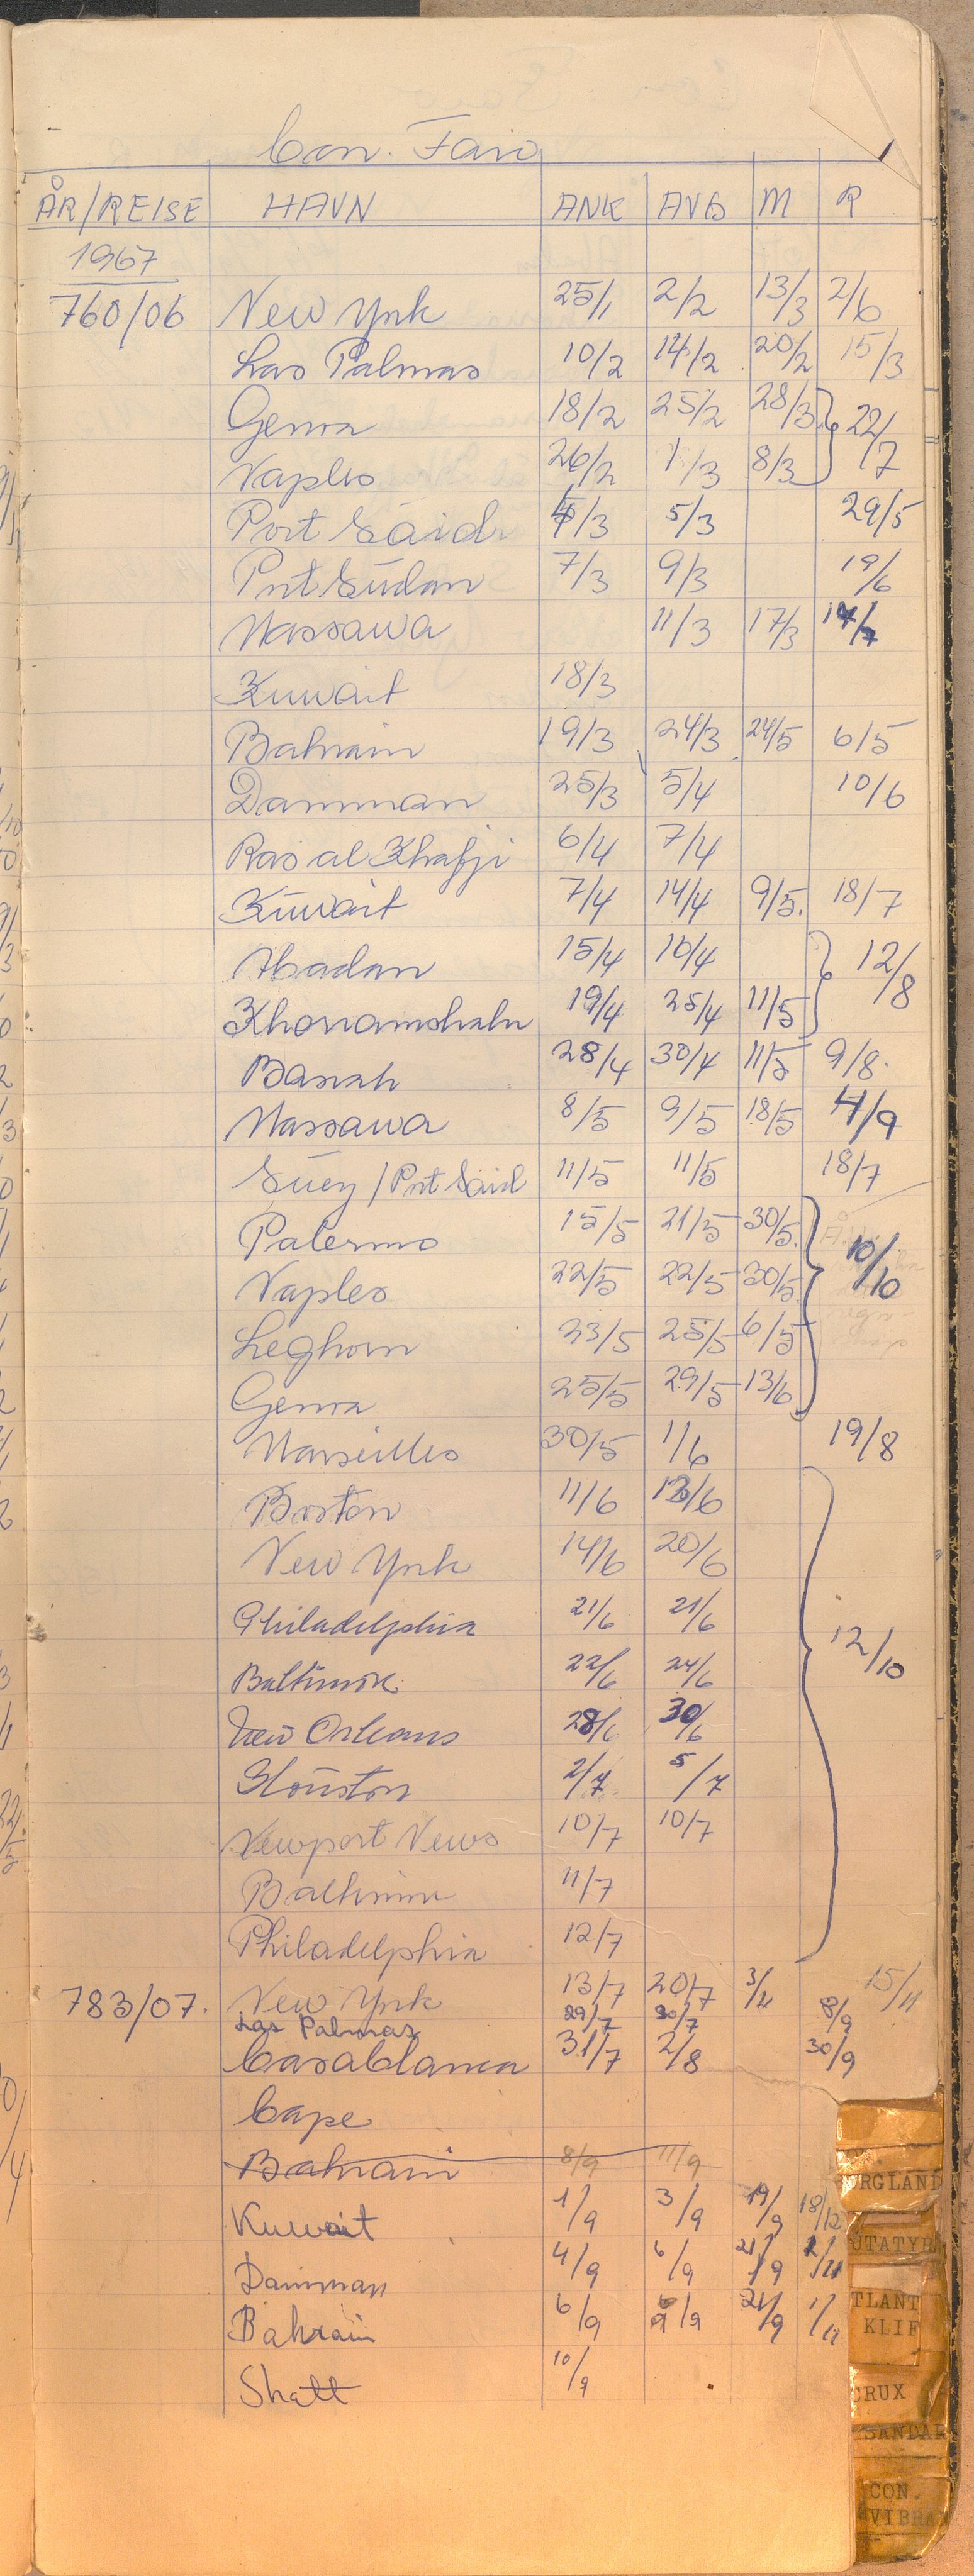 Con. Faro
ÅR/REISE HAVN ANK AVG M R
1967
760/06 New York 25/1 2/2 13/3 2/6
Las Palmas 10/2 14/2 20/2 15/3
Genoa 18/2 25/2 28/3 22/7
Naples 26/2 1/3 8/3
Port Said /3 5/3 29/5
Port Sudan 7/3 9/3 19/6
Massawa 11/3 17/3
Kuwait 18/3
Bahrain 19/3 24/3 24/5 6/5
Damman 25/3 5/4 10/6
Ras al Khafji 6/4 7/4
Kuwait 7/4 14/4 9/5. 18/7
Abadan 15/4 10/4 12/8
Khorramshahr 19/4 25/4 11/5
Basrah 28/4 30/4 11/5 9/8.
Massawa 8/5 9/5 18/5 4/9
Suez / Port Said 11/5 11/5 18/7
Palermo 15/5 21/5 30/5. 10/10
Naples 22/5 22/5 30/5.
Leghorn 23/5 25/5 6/5
Genoa 25/5 29/5 13/6
Marseilles 30/5 1/6 19/8
Boston 11/6 13/6
New York 14/6 20/6
Philadelphia 21/6 21/6
Baltimore 22/6 24/6 12/10
New Orleans 28/6 30/6
Houston 2/7 5/7
Newport News 10/7 10/7
Baltimore 11/7
Philadelphia 12/7
783/07. New York 13/7 20/7 15/11
Las Palmas 29/7 30/7 8/9
Casablanca 31/7 2/8 30/9
Cape
Bahrain 8/9 11/9
Kuwait 1/9 3/9 19/9 18/12
Damman 4/9 6/9 21/9
Bahrain 6/9 9/9 21/9
Shatt 10/9
ORGLAND
UTATYR
TLANT
KLIF
CRUX
SANDAR
CON.
VIBRA